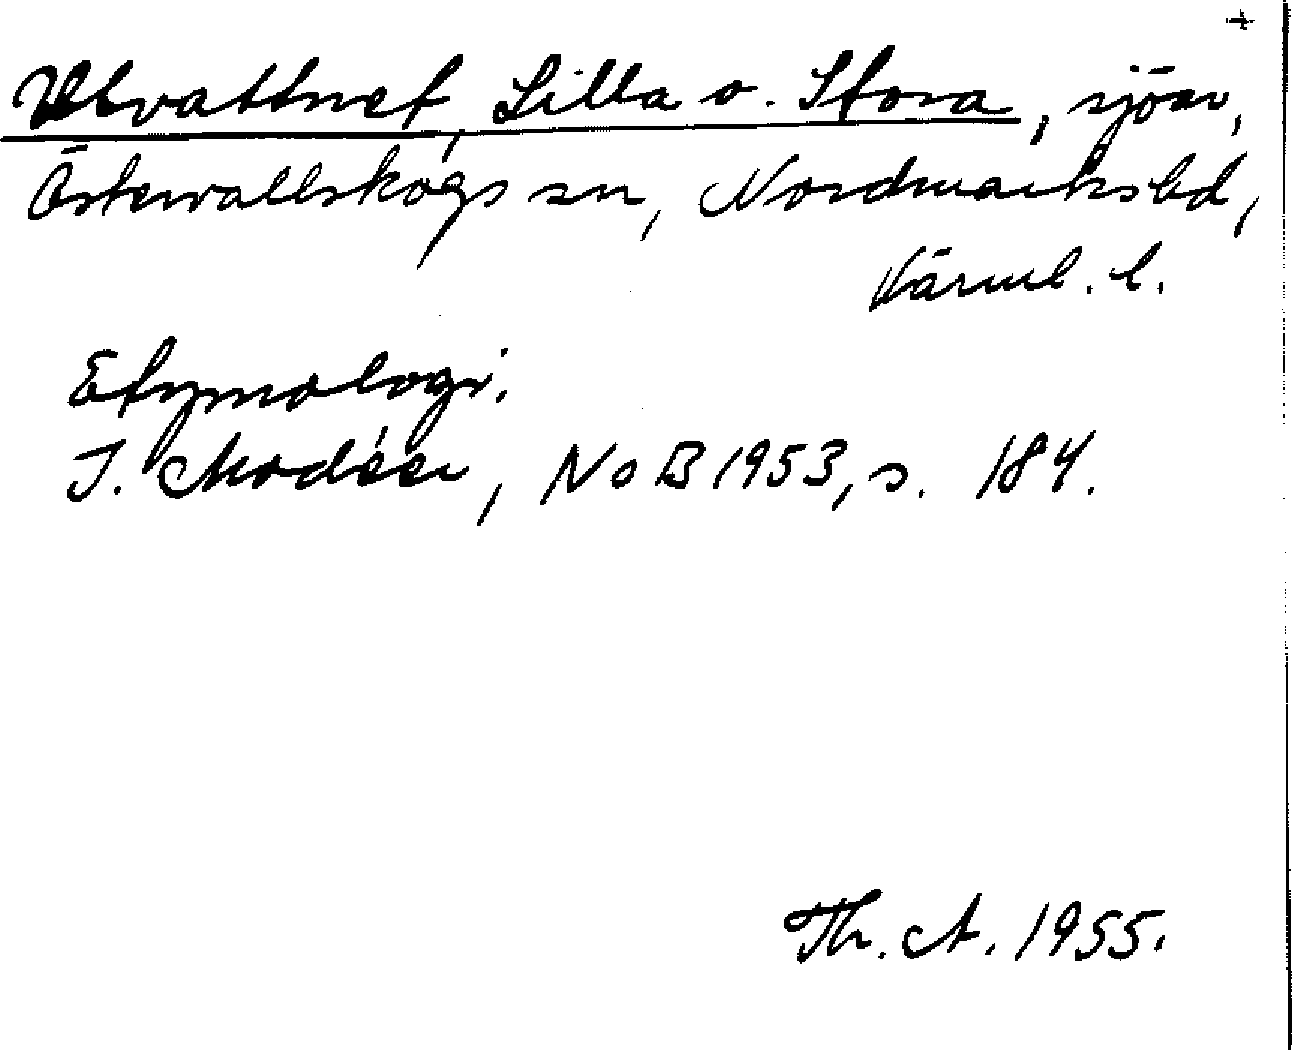 +
Ulvattnet, Lilla o. Stora, sjöar,
Östervallskogs sn, Nordmarks hd,
Värml. l.
Etymologi.
I. Modéer, NoB 1953, s. 184.
Th. A. 1955.